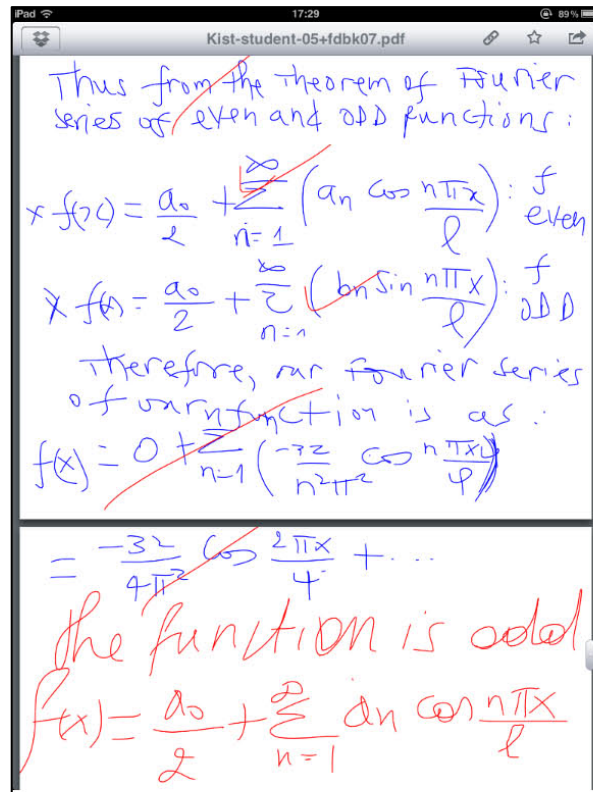 iPad 17:29 89%
Kist-student-05+fdbk07.pdf
Thus from the theorem of Fourier
series of even and ODD functions :
× f(x) = a₀/2 + ∑_{n=1}^{∞} (aₙ cos nπx/l) : f even
× f(x) = a₀/2 + ∑_{n=1}^{∞} (bn sin nπx/l) : f ODD
Therefore, our Fourier series
of our function is as :
f(x) = 0 + ∑_{n=1} (-32/n²π² cos nπx/4)
= -32/4π² cos 2πx/4 + ...
the function is odd
f(x) = a₀/2 + ∑_{n=1}^{∞} an cos nπx/l